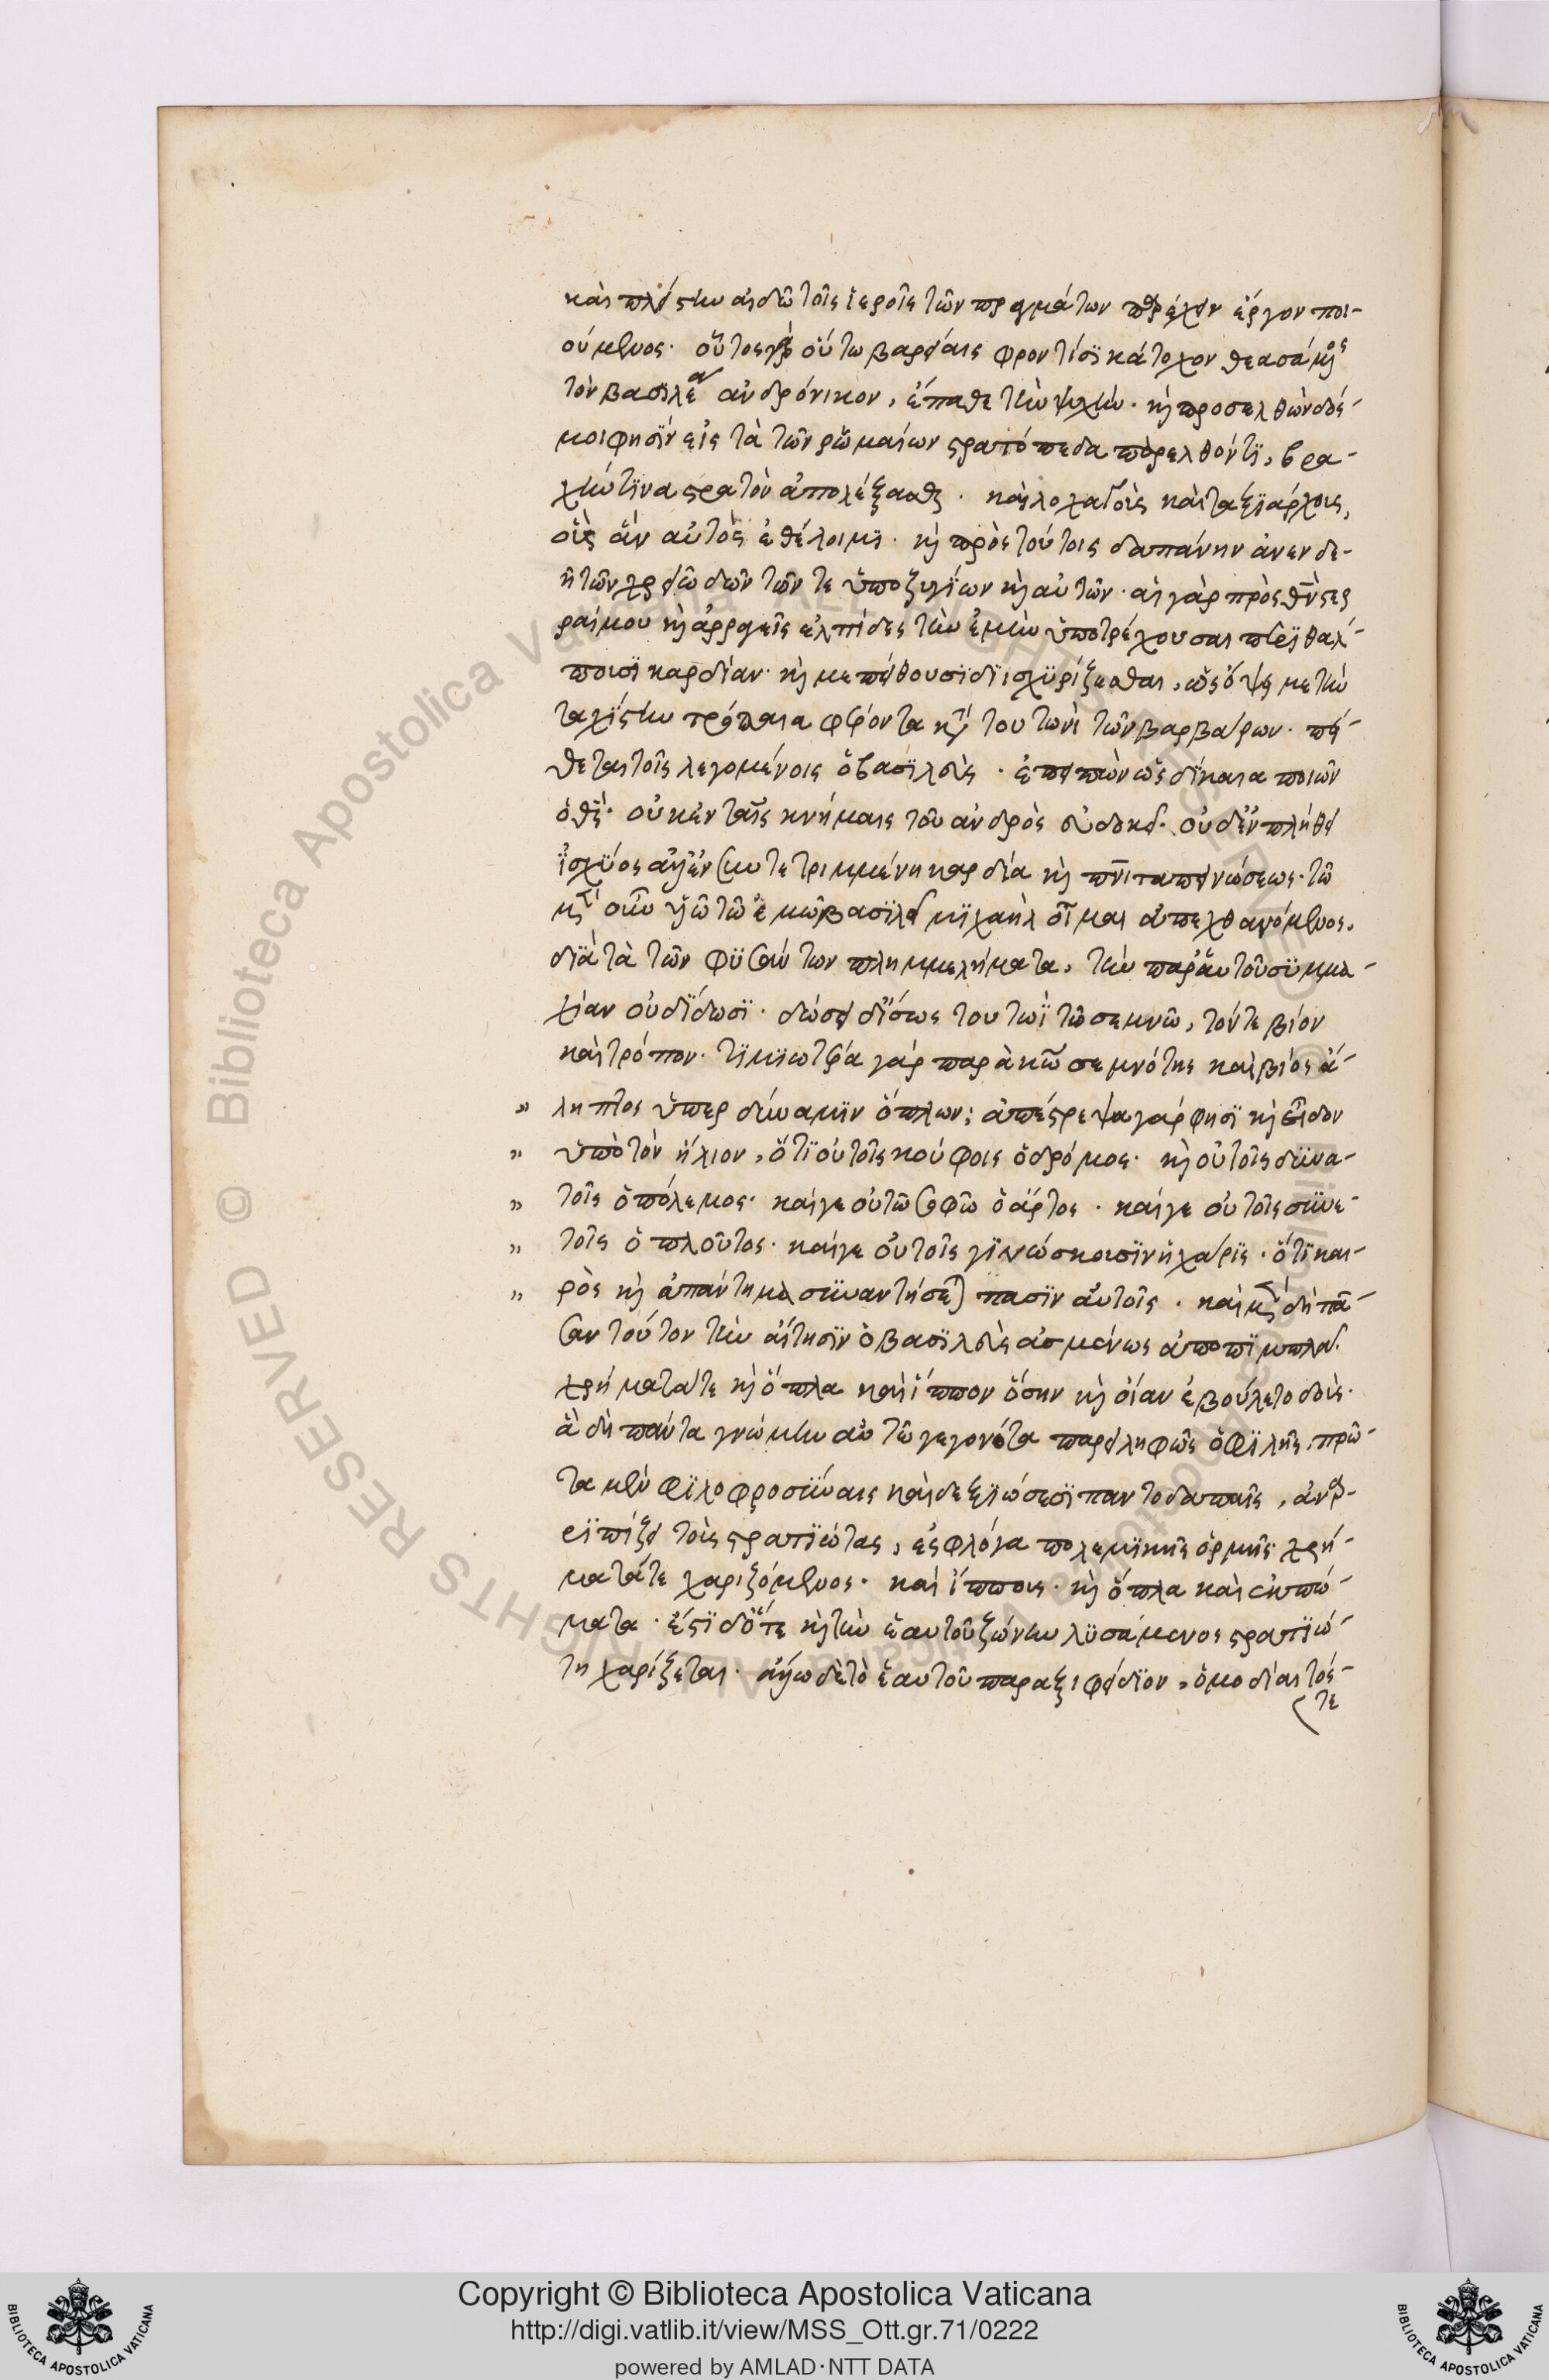 καὶ πλείστην αἰδῶ τοῖς ἱεροῖς τῶν πραγμάτων παρέχειν ἔργον ποι-
ούμενος. οὗτος γὰρ οὕτω βαρείαις φροντίσι κάτοχον θεασάμενος
τὸν βασιλέα ἀνδρόνικον, ἔπαθε τὴν ψυχήν. καὶ προσελθὼν δός
μοι φησὶν εἰς τὰ τῶν ῥωμαίων στρατόπεδα παρελθόντι, βρα-
χύν τινα στρατὸν ἀπολέξασθαι. καὶ λοχαγοῖς καὶ ταξιάρχοις,
οἷς ἂν αὐτὸς ἐθέλοιμι. καὶ πρὸς τούτοις δαπάνην ἀνενδε-
ῆ τῶν χρειωδῶν τῶν τε ὑποζυγίων καὶ αὐτῶν. αἱ γὰρ πρὸς θεὸν
μου καὶ ἀρραγεῖς ἐλπίδες τὴν ἐμὴν ὑποτρέχουσαι περιθάλ-
πουσι καρδίαν. καί με πείθουσι διισχυρίζεσθαι, ὡς ὄψει με τὴν
ταχίστην τρόπαια φέροντα κατὰ τουτωνὶ τῶν βαρβάρων. πεί-
θεται τοῖς λεγομένοις ὁ βασιλεὺς. ἐπειπὼν ὡς δίκαια ποιῶν
ὁ θεός. οὐκ ἐν ταῖς κνήμαις τοῦ ἀνδρὸς εὐδοκεῖ. οὐδ' ἐν πλήθει
ἰσχύος ἀλλ' ἐν συντετριμμένῃ καρδίᾳ καὶ πνεύματι ταπεινώσεως. τῶ
μέντοι οὖν υἱῶ τῶ ἐμῶ βασιλεῖ μιχαὴλ οἶμαι ἀπεχθανόμενος,
διὰ τὰ τῶν φυσάντων πλημμελήματα, τὴν παρ' ἑαυτοῦ συμμα-
χίαν οὐ δίδωσι. δώσει δ' ἴσως τουτωῒ τῶ σεμνῶ, τόν τε βίον
καὶ τρόπον. τιμιωτέρα γὰρ παρὰ θεῶ σεμνότης καὶ βίος ἄ-
» ληπτος ὑπὲρ δύναμιν ὅπλων; ἀπέστρεψα γάρ φησι καὶ εἶδον
» ὑπὸ τὸν ἥλιον, ὅτι οὐ τοῖς κούφοις ὁ δρόμος. καὶ οὐ τοῖς δυνα-
» τοῖς ὁ πόλεμος. καί γε οὐ τῶ σοφῶ ὁ ἄρτος. καί γε οὐ τοῖς συνε-
» τοῖς ὁ πλοῦτος. καί γε οὐ τοῖς γινώσκουσιν ἡ χάρις. ὅτι και-
» ρὸς καὶ ἀπάντημα συναντήσεται πᾶσιν αὐτοῖς. καὶ μέντοι δὴ πᾶ-
σαν τούτου τὴν αἴτησιν ὁ βασιλεὺς ἀσμένως ἀποπίμπλα.
χρήματά τε καὶ ὅπλα καὶ ἵππον ὅσην καὶ οἵαν ἐβούλετο δούς.
ἃ δὴ πάντα γνώμην αὐτῶ γεγονότα παρειληφὼς ὁ φιλῆς, πρῶ-
τα μὲν φιλοφροσύναις καὶ δεξιώσεσι παντοδαπαῖς, ἀνερ-
ριπίζει τοὺς στρατιώτας, ἐς φλόγα πολεμικῆς ὁρμῆς χρή-
ματά τε χαριζόμενος. καὶ ἵππους. καὶ ὅπλα καὶ ἐκπώ-
ματα. ἔστι δ' ὅτε καὶ τὴν ἑαυτοῦ ζώνην λυσάμενος στρατιώ-
τῃ χαρίζεται. ἄλλω δὲ τὸ ἑαυτοῦ παραξιφείδιον, ὁμοδίαιτός
τε
Copyright © Biblioteca Apostolica Vaticana
http://digi.vatlib.it/view/MSS_Ott.gr.71/0222
powered by AMLAD·NTT DATA